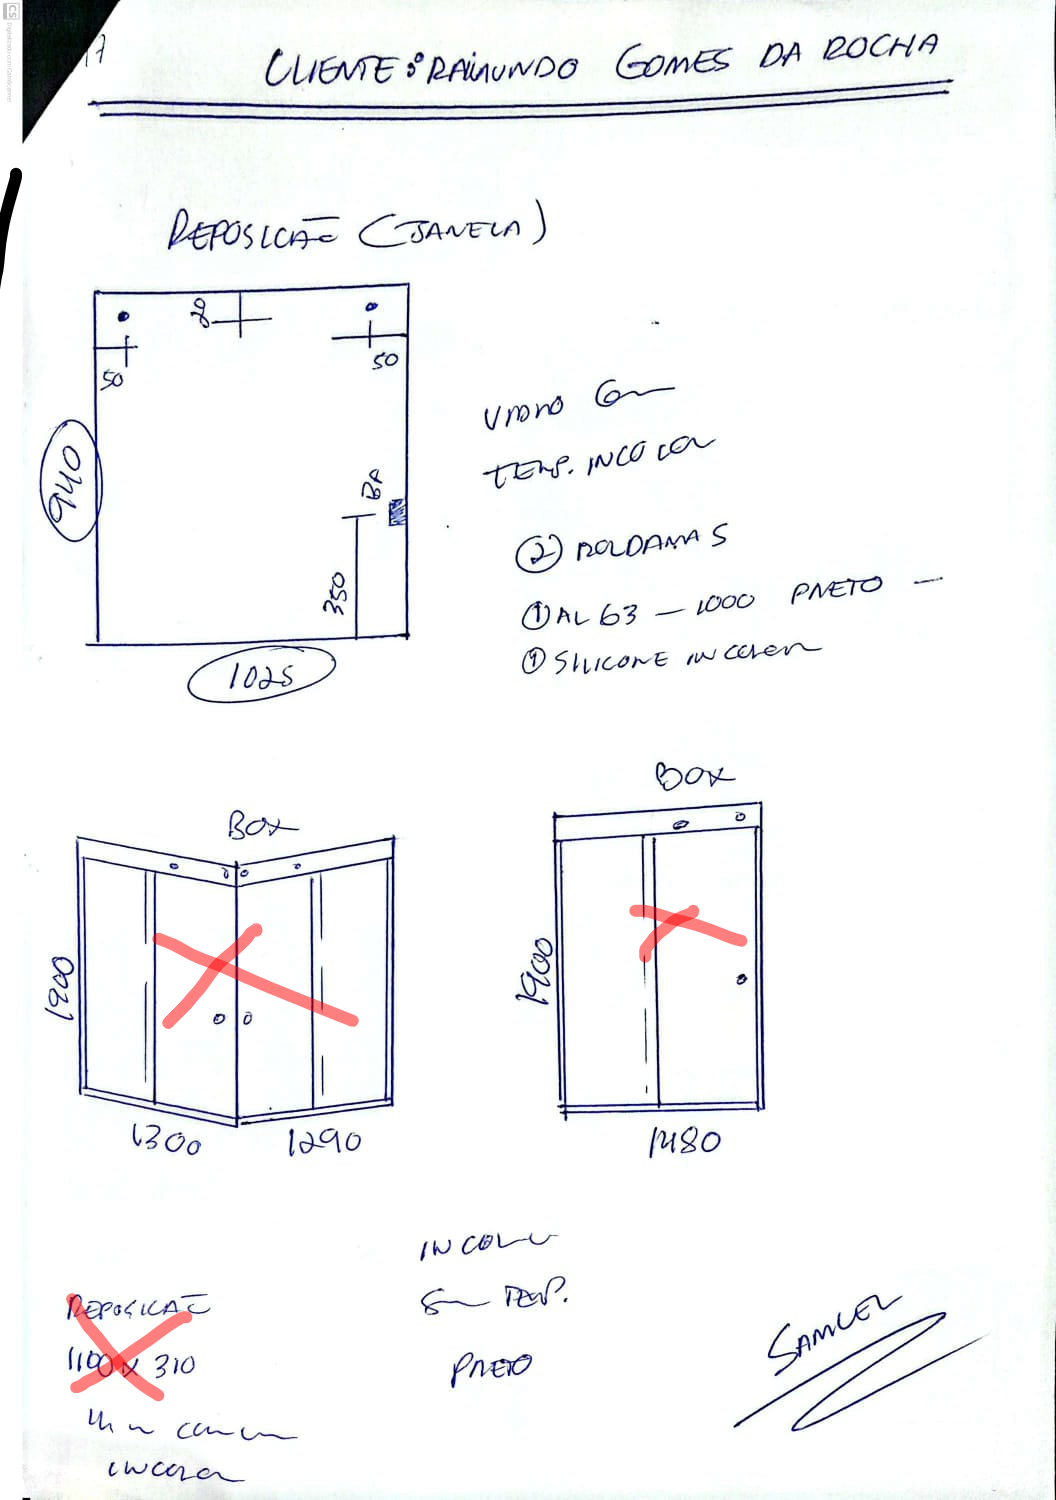 17
CLIENTE: RAIMUNDO GOMES DA ROCHA
REPOSICAÕ (JANELA)
20
50
50
940
BA
350
1025
VIDRO 6m
TEMP. INCOLOR
2 ROLDANAS
1 AL 63 - 1000 PRETO -
1 SILICONE INCOLOR
BOX
1900
1300
1290
BOX
1900
1480
INCOLOR
8m TEMP.
PRETO
REPOSICAÕ
1100 X 310
INCOLOR
SAMUEL
CS Digitalizado com CamScanner